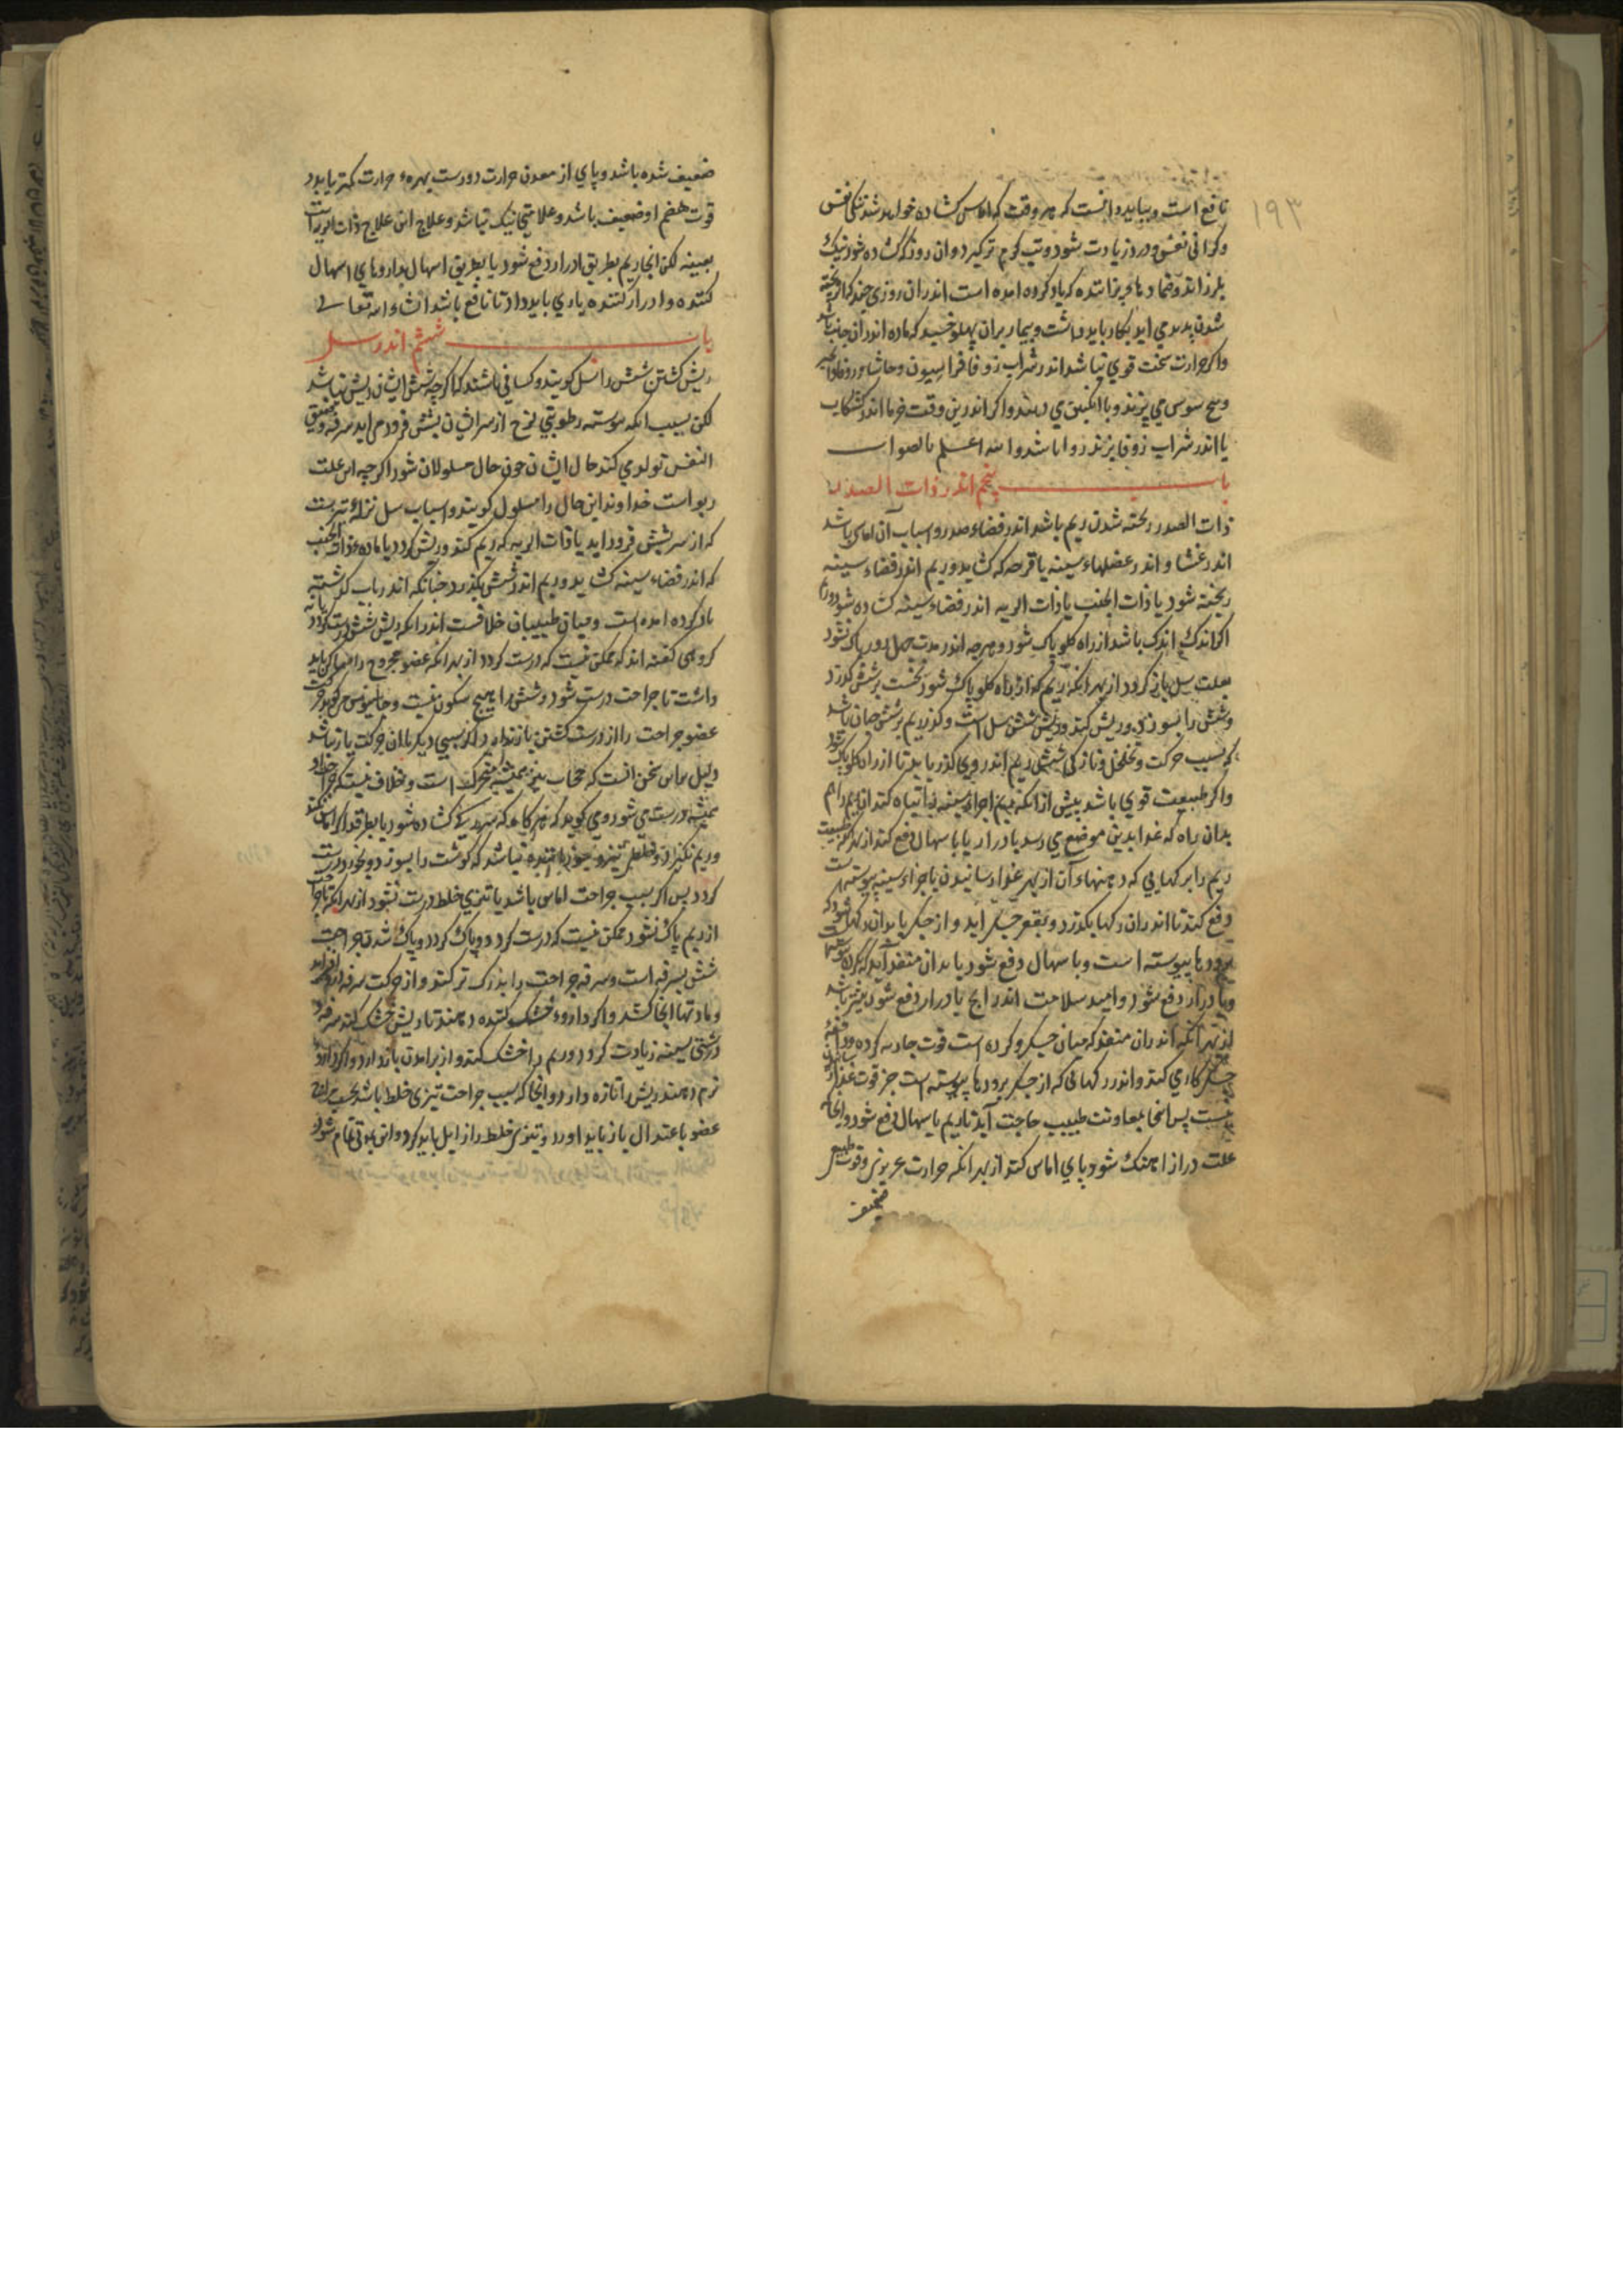 ۱۹۳
نافع است و بباید دانست که هر وقت که اماس کشاده خواهد شد تنکی نفس
و کرانی نفس و درد زیادت شود و تب کرم تر کیرد و ان روز که کشاده شود نیک
بلرزاند و ضمادهاء پزاننده که یاد کرده امده است اندر ان روزی چند که اثر پخته
شدن پدید می اید بکار باید داشت و بیمار بران پهلو خسبد که ماده اندر ان جانب باشد
و اکر حرارت سخت قوی نباشد اندر شراب زوفا فراسیون و حاشا
و بیخ سوسن می پزند و با انکبین می دهند و اکر اندرین وقت خرما اندر کشکاب
یا اندر شراب زوفا پزند روا باشد و الله اعلم بالصواب
باب پنجم اندر ذات الصدر
ذات الصدر ریخته شدن ریم باشد اندر فضاء صدر و اسباب آن اماسی باشد
اندر غشا و اندر عضلهاء سینه یا قرحه که کشاید و ریم اندر فضاء سینه
ریخته شود یا ذات الجنب یا ذات الریه اندر فضاء سینه کشاده شود و ریم
اکر اندک اندک باشد از راه کلو پاک شود و هرچه اندر مدت چهل روز پاک نشود
بعلت سل باز کردد از بهر انکه ریم که از راه کلو پاک شود نخست بر شش کذرد
و شش را بسوزد و ریش کند و ریش شش سل است و کذر ریم بر شش چنان باشد
که بسبب حرکت و تخلخل و نازکی شش ریم اندر وی کذر یابد تا از راه کلو پاک شود
و اکر طبیعت قوی باشد پیش از انکه ریم اجزاء سینه را تباه کند ان ریم را هم
بدان راه که غذا بدین موضع می رسد بادرار یا باسهال دفع کند از بهر انکه طبیعت
ریم را بر کهایی که دهنهاء آن از بهر غذا رسانیدن باجزاء سینه پیوسته است
دفع کند تا اندر ان رکها بکذرد و بقعر جکر اید و از جکر یا بدان رکها شود که
برودها پیوسته است و باسهال دفع شود یا بدان منفذ آید که بکرده پیوسته است
و بادرار دفع شود و امید سلامت اندر انچ بادرار دفع شود بیشتر باشد
از بهر انکه اندر ان منفذ که میان جکر و کرده است قوت جاذبه کرده و دافعه
جکر کار می کند و اندر رکهائی که از جکر برودها پیوسته است جز قوت غذا
نیست پس انجا بمعاونت طبیب حاجت آید تا ریم باسهال دفع شود و انجا که
علت دراز اهنک شود پای اماس کند از بهر انکه حرارت غریزی و قوت طبیعی
ضعیف
ضعیف شده باشد و پای از معدن حرارت دورست بهرهء حرارت کمتر یابد و
قوت هضم او ضعیف باشد و علامتی نیک نباشد و علاج این علاج ذات الریه است
بعینه لکن انجا ریم بطریق ادرار دفع شود یا بطریق اسهال بداروهای اسهال
کننده و ادرار کننده یاری باید داد تا نافع باشد انشاء الله تعالی
باب ششم اندر سل
ریش کشتن شش را سل کویند و کسانی باشند که اکرچه شش ایشان ریش نباشد
لکن بسبب انکه پیوسته رطوبتی لزج از سر ایشان بشش فرود می اید سرفه و ضیق
النفس تولد می کند حال ایشان چون حال مسلولان شود اکرچه این علت
ربو است خداوند این حال را مسلول کویند و اسباب سل نزلهٔ تیز ست
که از سر بشش فرود اید یا ذات الریه که ریم کند و ریش کردد یا ماده ذات الجنب
که اندر فضاء سینه کشاید و ریم اندر شش بکذرد چنانکه اندر باب کذشته
یاد کرده امده است و میان طبیبان خلافست اندر انکه ریش شش درست کردد یا نه
کروهی کفته اند که ممکن نیست که درست کردد از بهر انکه عضو مجروح را ساکن باید
داشت تا جراحت درست شود و شش را هیچ سکون نیست و جالینوس می کوید حرکت
عضو جراحت را از درست کشتن باز ندارد اکر سببی دیکر با ان حرکت یار نباشد
و دلیل بر این سخن انست که حجاب نیز همیشه متحرک است و خلاف نیست که جراحت او
همیشه درست می شود و می کوید که هر کاه که سر رک کشاده شود یا بطرقد اکر اماس نکند
و ریم نکیرد و خلطی تیز و سوزاننده نباشد که کوشت را بسوزد و بخورد درست
کردد پس اکر بسبب جراحت اماس باشد یا تیزی خلط درست نشود از بهر انکه تا جراحت
از ریم پاک نشود ممکن نیست که درست کردد و پاک کردد و پاک شدن جراحت
شش بسرفه است و سرفه جراحت را بزرک تر کند و از حرکت سرفه درد افزاید
و مادتها انجا کشد و اکر داروء خشک کننده دهند تا ریش خشک کند سرفه و
درشتی سینه زیادت کردد و ریم را خشک کند و از برامدن باز دارد و اکر داروء
نرم دهند ریش را تازه دارد و انجا که سبب جراحت تیزی خلط باشد
عضو باعتدال باز باید اورد و تیزی خلط را زایل باید کرد و این بمدتی تمام شود